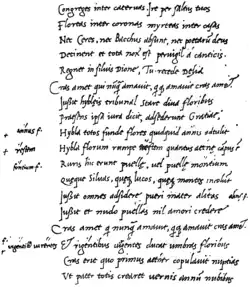 Congreges inter catervas Ire per saltus tuos
Floreas inter coronas myrteas inter casas
Nec Ceres, nec Bacchus absunt, nec poetarum deus
Detinent et tota nox est pervigila canticis
Regnet in silvis Dione, Tu recede Delia
Cras amet qui nunquam amavit, quique amavit cras amet
Jussit hybleis tribunal stare diva floribus
Praesens ipsa iura dicit, adsederunt Gratiae
Hybla totos funde flores quidquid annus adtulit
Hybla florum rumpe quantus aetne campus
Ruris hic erunt puellae, vel puellae montium
Quaeque silvas, quaeque lucos, quaeque montes
Jussit omnes adsidere pueri mater alitis
Jussit et nudo puellas nil amori credere
Cras amet qui nunquam amavit, quique amavit cras amet
Et virentes ducat umbras floribus
Cras erit quo primus aether copulavit nuptias
Ut pater totis crearet vernis annum nubibus